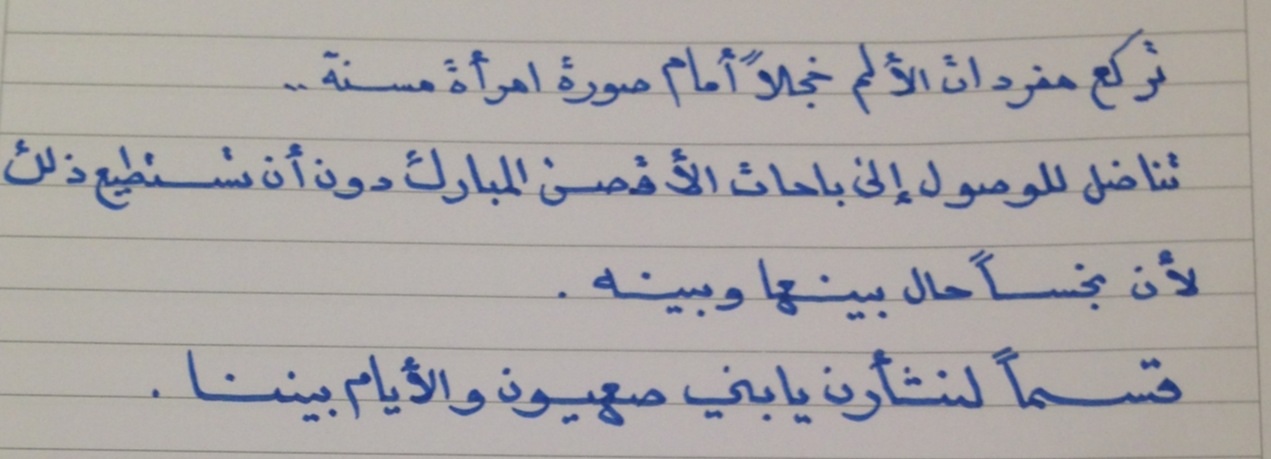 تركع مفردات الألم خجلاً أمام صورة امرأة مسنة ..
تناضل للوصول إلى باحات الأقصى المبارك دون أن تستطيع ذلك
لأن نجساً حال بينها وبينه .
قسماً لنثأرن يا بني صهيون والأيام بيننا .